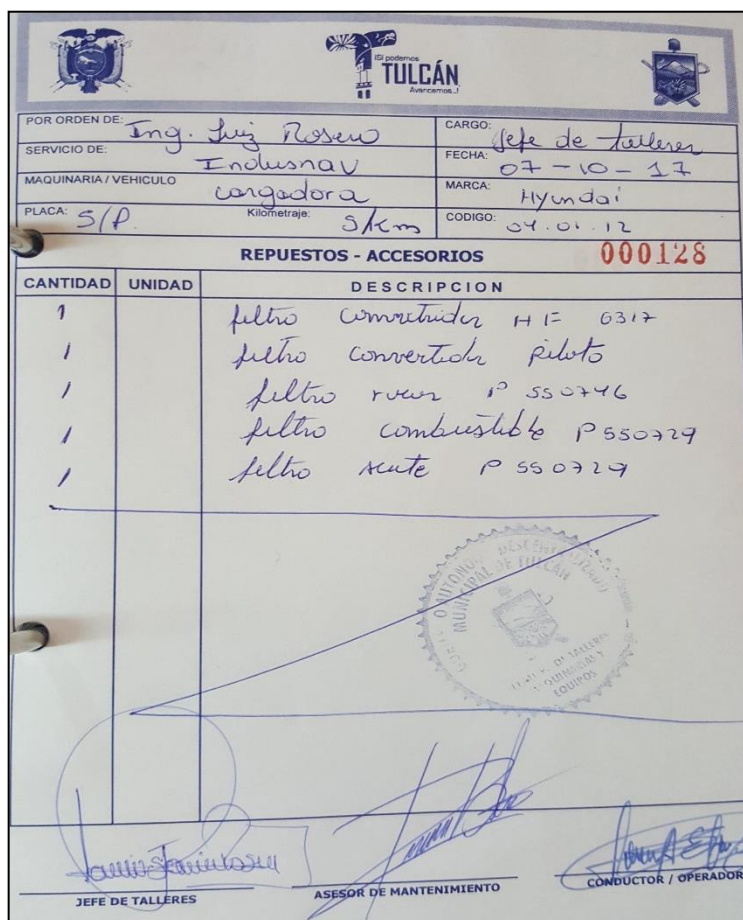 ¡Si podemos
TULCÁN
Avancemos..!
POR ORDEN DE: Ing. Luiz Rosero
CARGO: Jefe de talleres
SERVICIO DE: Indusnav
FECHA: 07-10-17
MAQUINARIA / VEHICULO cargadora
MARCA: Hyundai
PLACA: S/P. Kilometraje: S/Km
CODIGO: 04.01.12
REPUESTOS - ACCESORIOS 000128
CANTIDAD UNIDAD DESCRIPCION
1 filtro HF 6317
1 filtro convertidor piloto
1 filtro P 550746
1 filtro combustible P550729
1 filtro P 550729
AUTONOMO DESCENTRALIZADO
MUNICIPAL DE TULCÁN
DE TALLERES
MAQUINARIAS Y
EQUIPOS
JEFE DE TALLERES
ASESOR DE MANTENIMIENTO
CONDUCTOR / OPERADOR